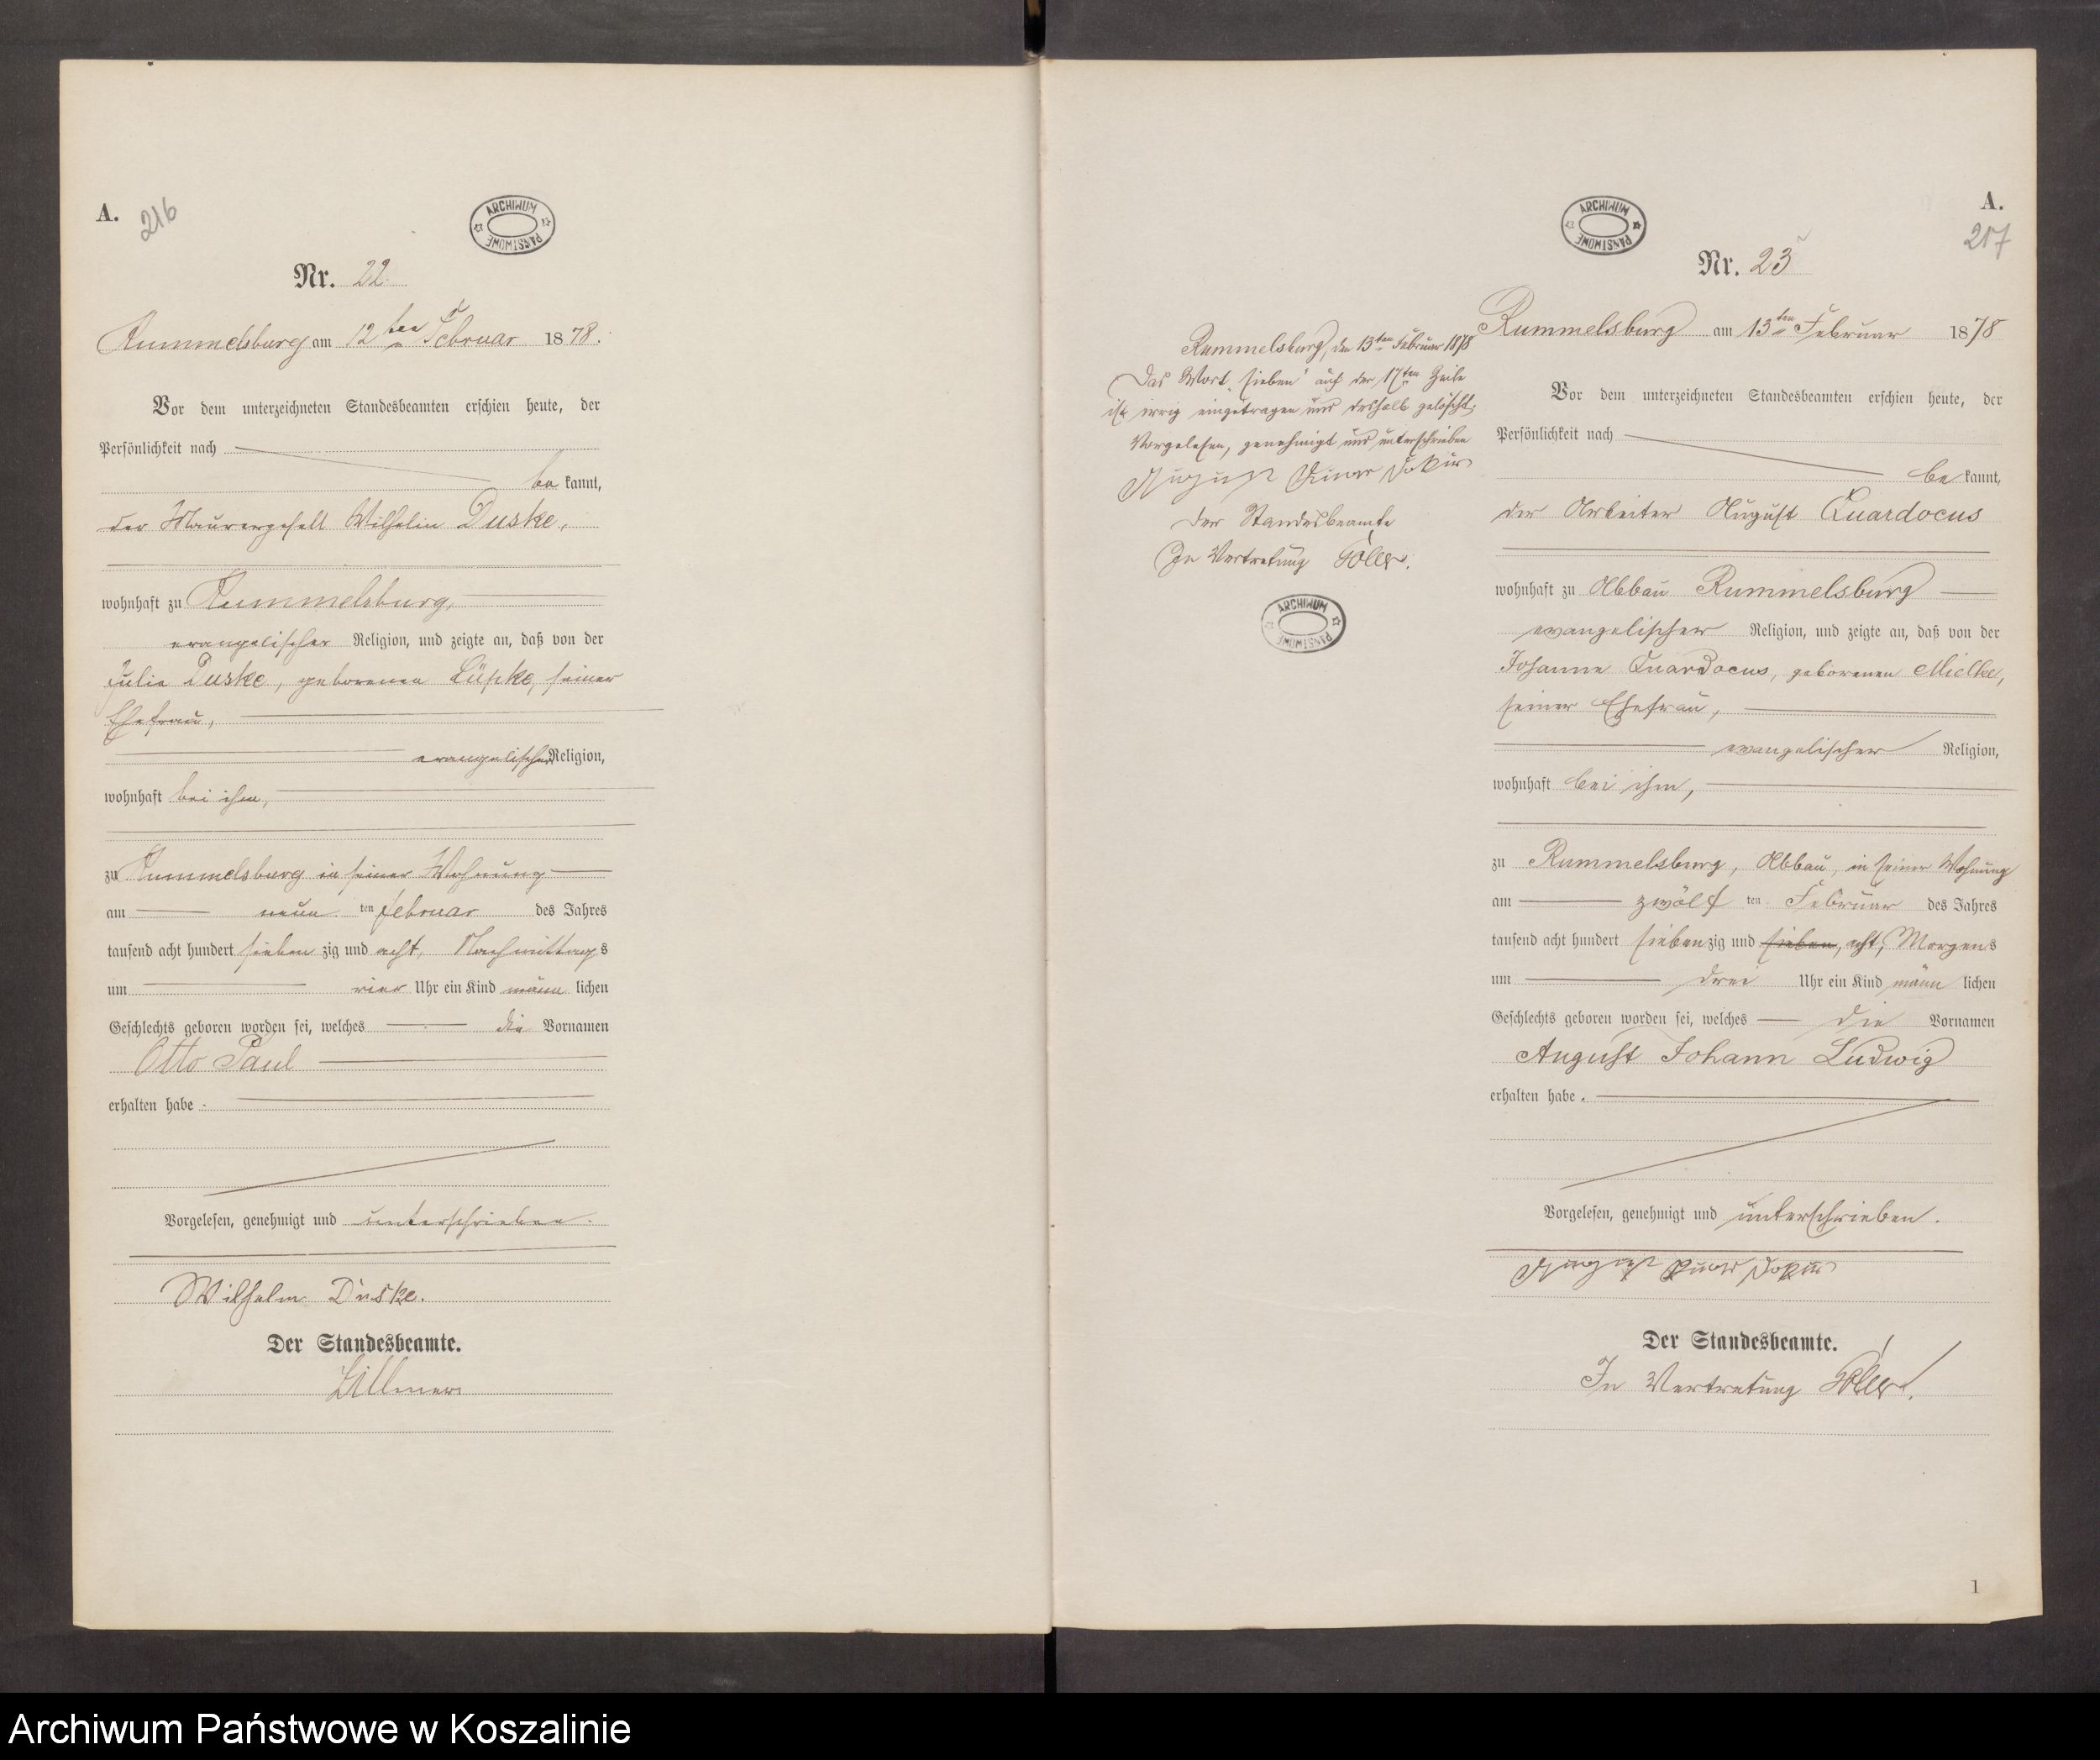 A.
216
ARCHIWUM PAŃSTWOWE
Nr. 22.
Rummelsburg am 12ten Februar 1878.
Vor dem unterzeichneten Standesbeamten erschien heute, der
Persönlichkeit nach
bekannt,
der Maurergesell Wilhelm Duske,
wohnhaft zu Rummelsburg,
evangelischer Religion, und zeigte an, daß von der
Julie Duske, geborenen Lüpke, seiner
Ehefrau,
evangelischer Religion,
wohnhaft bei ihm,
zu Rummelsburg in seiner Wohnung
am neun ten Februar des Jahres
tausend acht hundert sieben zig und acht, Nachmittags
um vier Uhr ein Kind männlichen
Geschlechts geboren worden sei, welches die Vornamen
Otto Paul
erhalten habe.
Vorgelesen, genehmigt und unterschrieben.
Wilhelm Duske.
Der Standesbeamte.
Rummelsburg, den 13ten Februar 1878
Das Wort „sieben" auf der 17ten Zeile
ist irrig eingetragen und deshalb gelöscht.
Vorgelesen, genehmigt und unterschrieben
August
Der Standesbeamte
In Vertretung
ARCHIWUM PAŃSTWOWE
ARCHIWUM PAŃSTWOWE
A.
217
Nr. 23
Rummelsburg am 13ten Februar 1878
Vor dem unterzeichneten Standesbeamten erschien heute, der
Persönlichkeit nach
bekannt,
der Arbeiter August Quardocus
wohnhaft zu Abbau Rummelsburg
evangelischer Religion, und zeigte an, daß von der
Johanne Quardocus, geborenen Mielke,
seiner Ehefrau,
evangelischer Religion,
wohnhaft bei ihm,
zu Rummelsburg, Abbau, in seiner Wohnung
am zwölf ten Februar des Jahres
tausend acht hundert siebenzig und sieben, acht, Morgens
um drei Uhr ein Kind männlichen
Geschlechts geboren worden sei, welches die Vornamen
August Johann Ludwig
erhalten habe.
Vorgelesen, genehmigt und unterschrieben.
August
Der Standesbeamte.
In Vertretung
1
Archiwum Państwowe w Koszalinie